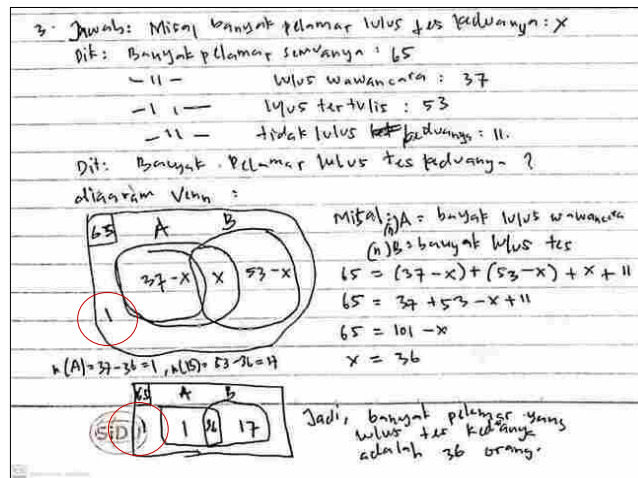 3. Jawab: Misal banyak pelamar lulus tes keduanya: x
Dik: Banyak pelamar semuanya: 65
—11— lulus wawancara: 37
—11— lulus tertulis: 53
—11— tidak lulus keduanya: 11.
Dit: Banyak Pelamar lulus tes keduanya?
diagram Venn:
65 A B
37-x x 53-x
1
Misal: (n)A = bayak lulus wawancara
(n)B = banyak lulus tes
65 = (37-x)+(53-x)+x+11
65 = 37+53-x+11
65 = 101-x
x = 36
n(A)=37-36=1, n(B)=53-36=17
65 A B
1 1 36 17
SiD
Jadi, banyak pelamar yang
lulus tes keduanya
adalah 36 orang.